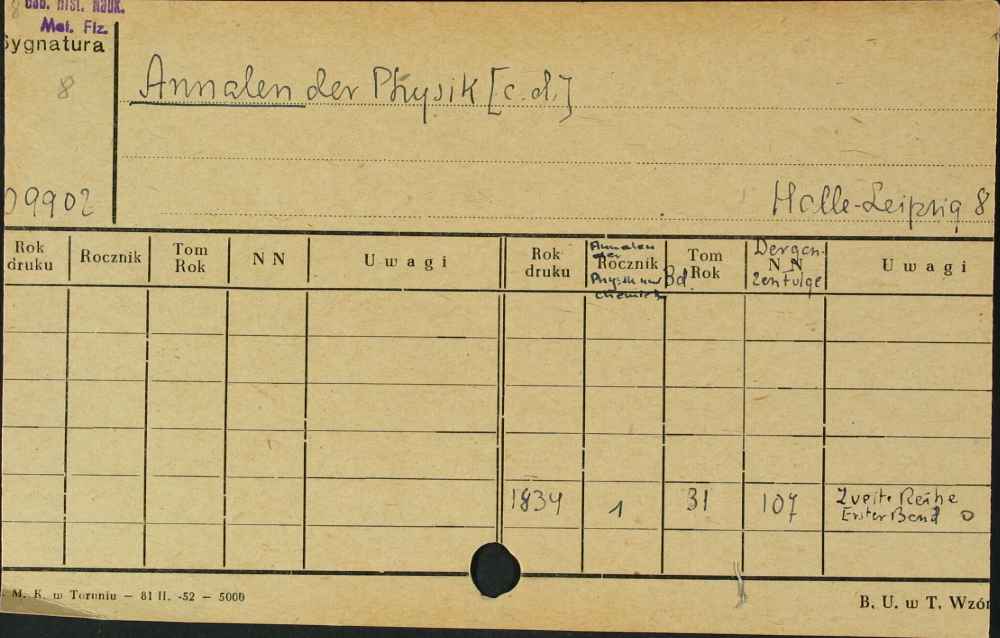 Gab. Hist. Nauk.
Mat. Fiz.
Sygnatura
8
Annalen der Physik [c.d.]
09902
Halle-Leipzig 8
Rok druku Rocznik Tom Rok NN Uwagi Rok druku Rocznik Tom Rok NN Uwagi
Annalen der Physik und Chemie Bd. Der ganzen folge
1834 1 31 107 Zweite Reihe
Erster Band 0
M. K. w Toruniu — 81 II. -52 — 5000
B. U. w T. Wzór